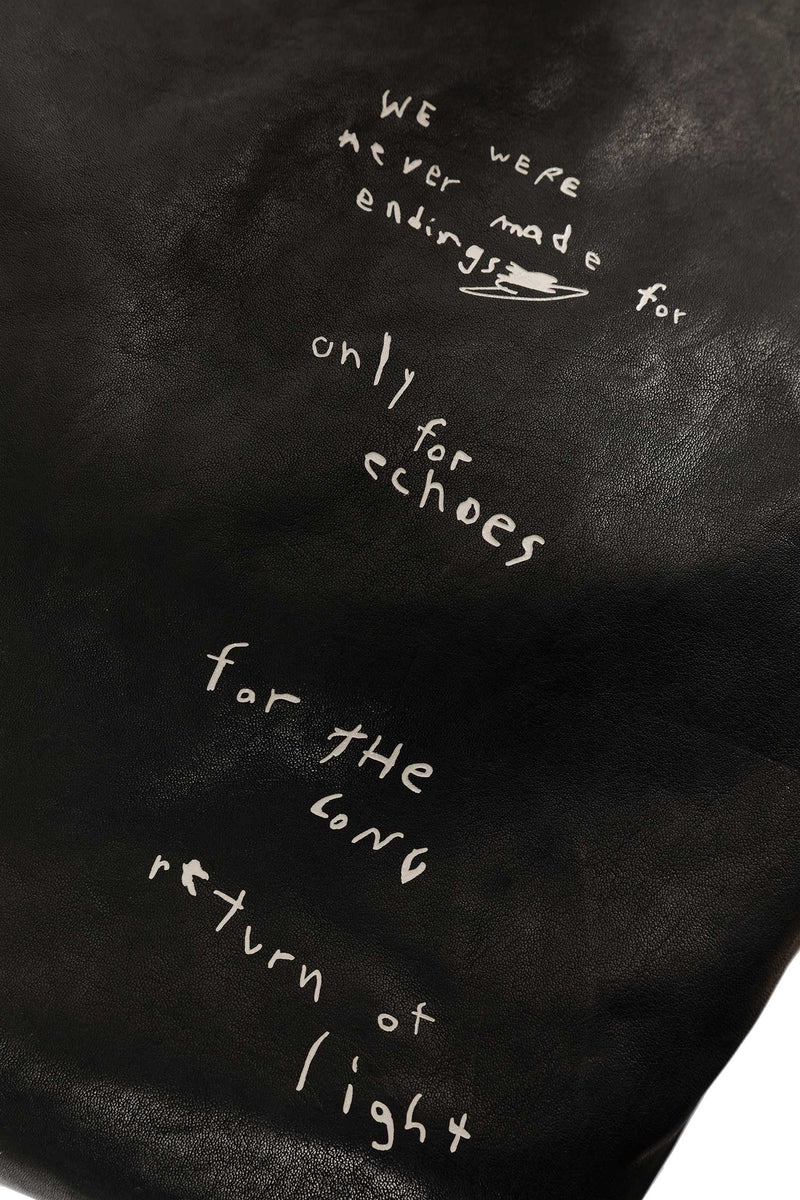 WE WERE
never made for
endings
only
for
echoes
for THe
LONG
return of
light